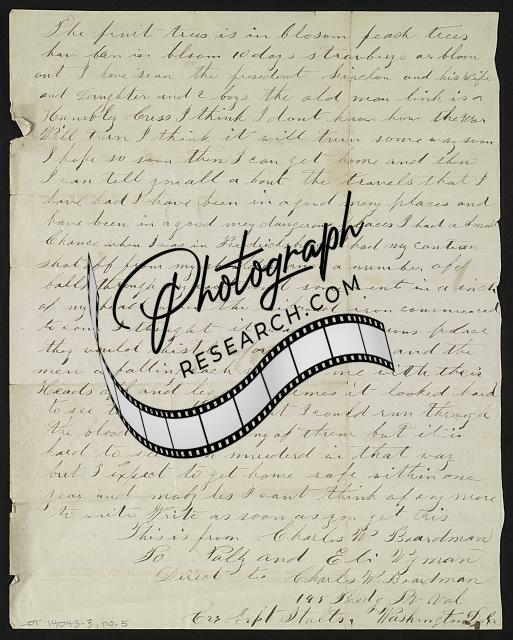 The fruit trees is in blosom peach trees
have ben in bloom 10 days straberys as bloon
out I have sean the president Lincelon and his Wife
and Daughter and 2 boys the old man link is a
Humbly Cuss I think I dont know how the War
Will turn I think it will turn some way soon
I hope so soon then I can get home and then
I can tell you all a bout the travels that I
have had I have been in a good meny places and
have been in a good meny dangerous places I had a small
Chance when I was in had my canteen
shot off from my a number of
balls through went in a inch
of my commenced
to thought place
they would and the
men a falling me with their
Heads off and leg times it looked hard
to see I could run through
the blood of them but it is
hard to murderd in that way
but I expect to get home safe within one
year and mabyles I cant think of eny more
to write Write as soon as you get this
This is from Charles W Boardman
To Palty and Eli Wyman
Direct to Charles W. Boardman
Washington D.C.
LOT 14043-3, no. 5
Photograph
RESEARCH.COM